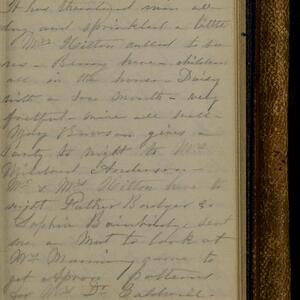 It has threatened rain all
day and sprinkled a little
Mrs Hilton called to see
us - Benny here - children
all in the house - Daisy
with a sore mouth - very
fretful - mine all well -
May Brown gives a
party to night to Mrs
Anderson -
Mr & Mrs Hilton here to
night
Sophia Bainbridge sent
me a Mat to look at
Mrs Manning gone to
get Apron patterns
for Mrs Dr Caldwell -